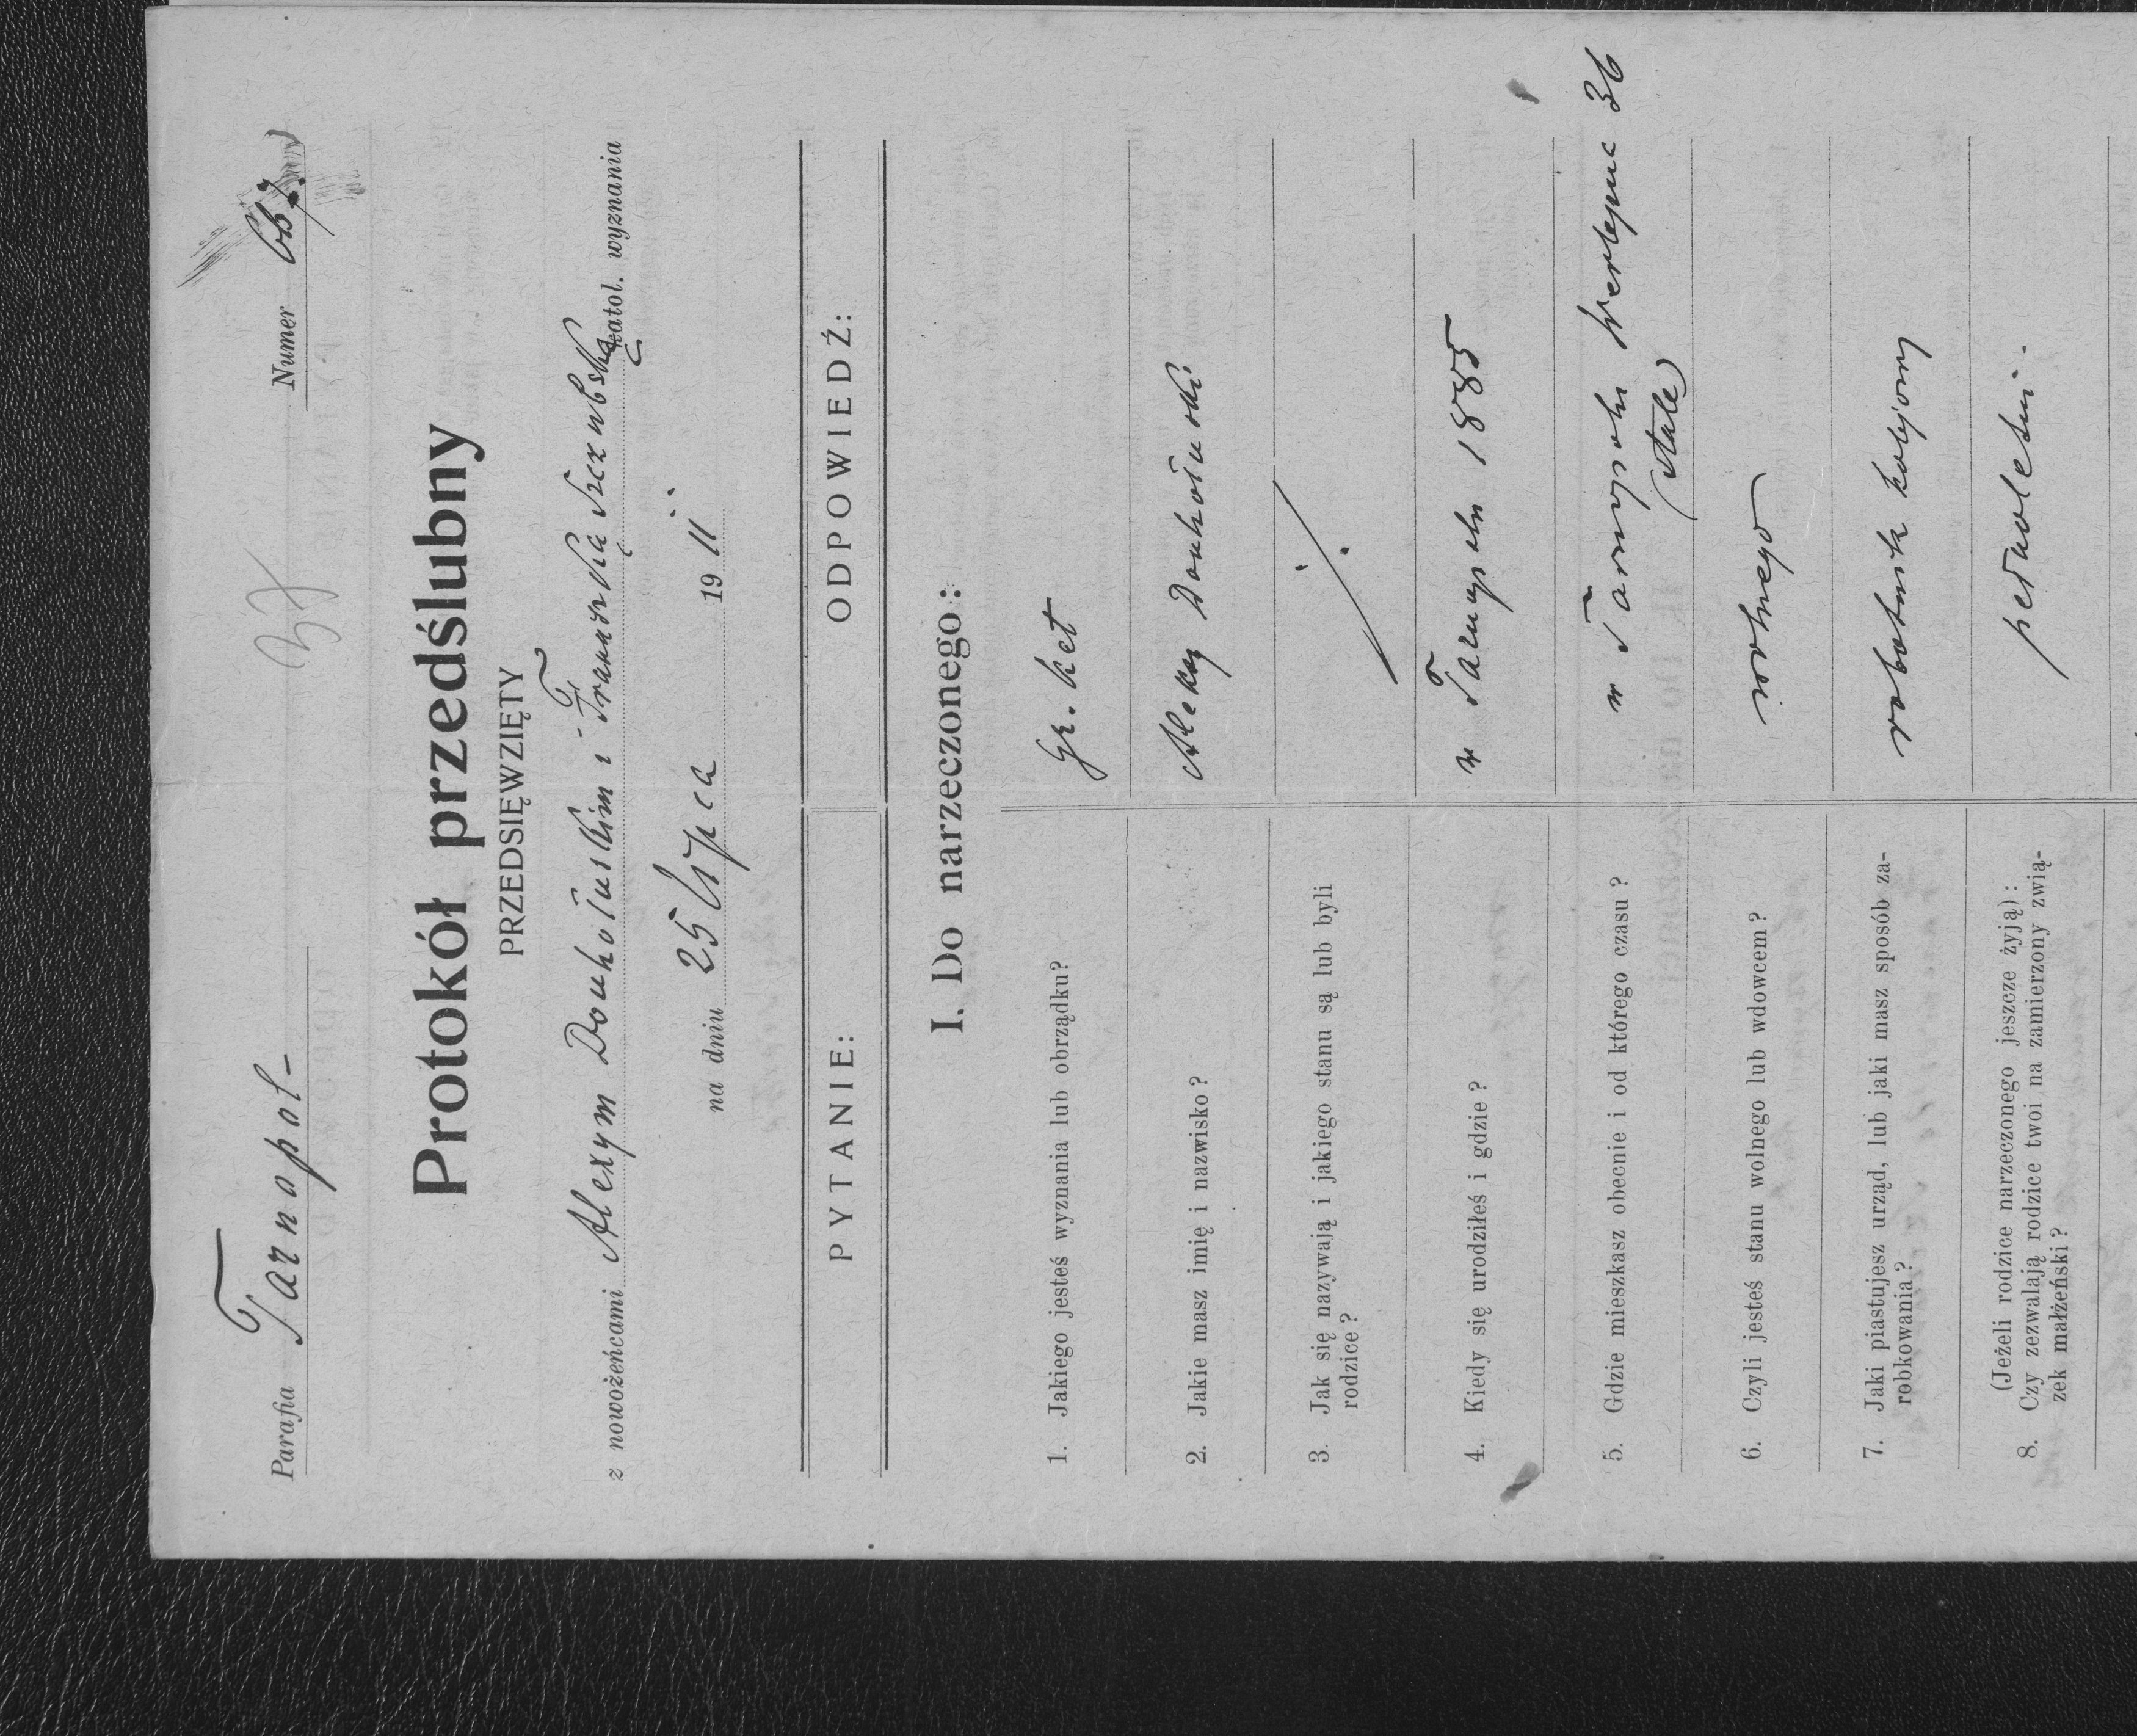 Parafia Tarnopol –
Numer
Protokół przedślubny
PRZEDSIĘWZIĘTY
z nowożeńcami Alexym i Franciszką katol. wyznania
na dniu 25 Lipca 1911.
PYTANIE: ODPOWIEDŹ:
I. Do narzeczonego:
1. Jakiego jesteś wyznania lub obrządku? Gr. kat
2. Jakie masz imię i nazwisko? Aleksy
3. Jak się nazywają i jakiego stanu są lub byli
rodzice?
4. Kiedy się urodziłeś i gdzie? w Tarnopolu 1885
5. Gdzie mieszkasz obecnie i od którego czasu? w Tarnopolu 36
(stale)
6. Czyli jesteś stanu wolnego lub wdowcem? wolnego
7. Jaki piastujesz urząd, lub jaki masz sposób za-
robkowania? robotnik kolejowy
(Jeżeli rodzice narzeczonego jeszcze żyją):
8. Czy zezwalają rodzice twoi na zamierzony zwią-
zek małżeński? pełnoletni.